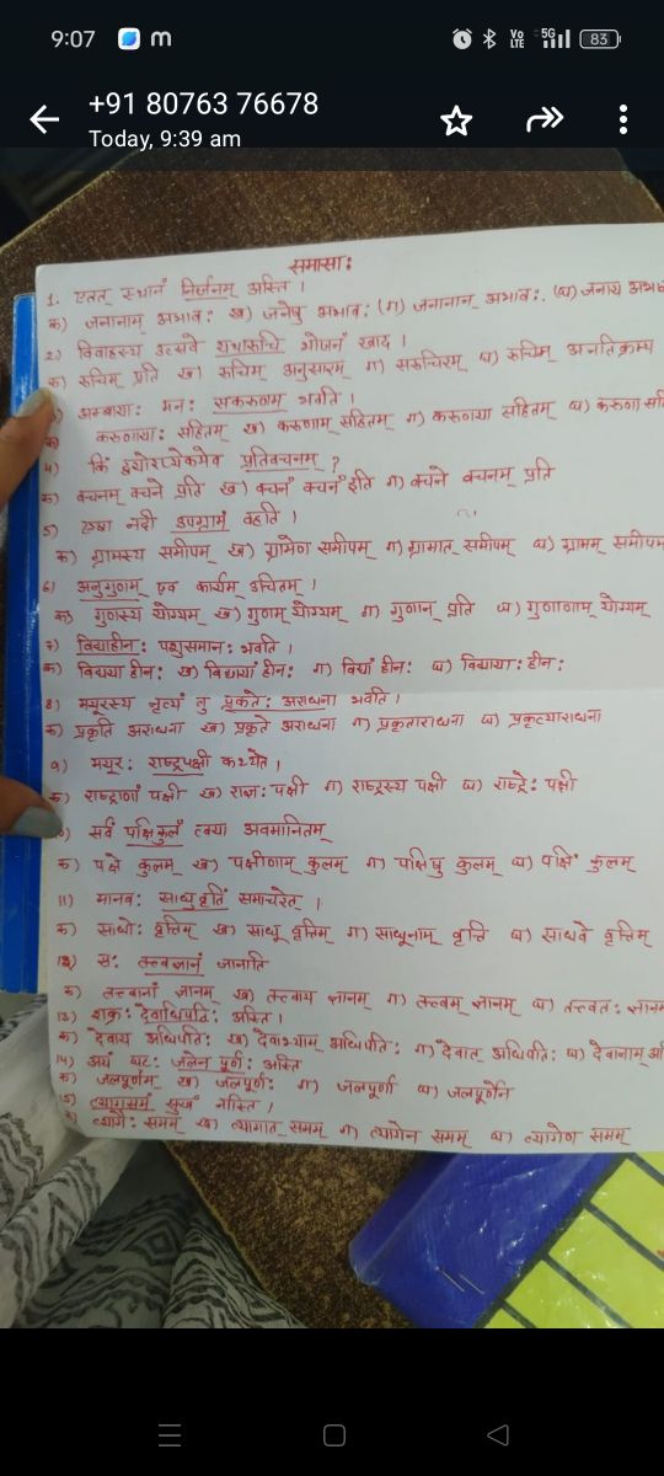 9:07 m Vo LTE 5G 83
+91 80763 76678
Today, 9:39 am
समासाः
1. एतत् स्थानं निर्जनम् अस्ति ।
क) जनानाम् अभावः ख) जनेषु अभावः (ग) जनानान् अभावः. (घ) जनाय
2) विवाहस्य उत्सवे यथारुचि भोजनं खाद ।
क) रुचिम् प्रति ख) रुचिम् अनुसारम् ग) सरुचिरम् घ) रुचिम् अनतिक्रम्य
अम्बायाः मनः सकरुणम् भवति ।
करुणायाः सहितम् ख) करुणाम् सहितम् ग) करुणया सहितम् घ) करुणा
4) किं द्वयोरप्येकमेव प्रतिवचनम् ?
क) वचनम् वचने प्रति ख) वचनं वचनं इति ग) वचने वचनम् प्रति
5) नदी उपग्रामं वहति ।
क) ग्रामस्य समीपम् ख) ग्रामेण समीपम् ग) ग्रामात् समीपम् घ) ग्रामम् समीपम
6) अनुगुणम् एव कार्यम् उचितम् ।
क) गुणस्य योग्यम् ख) गुणम् योग्यम् ग) गुणान् प्रति घ) गुणाणाम् योग्यम्
7) विद्याहीनः पशुसमानः भवति ।
क) विद्यया हीनः ख) विद्यायां हीनः ग) विद्यां हीनः घ) विद्यायाः हीनः
8) मयूरस्य नृत्यं तु प्रकृतेः अराधना भवति ।
क) प्रकृति अराधना ख) प्रकृते अराधना ग) प्रकृताराधना घ) प्रकृत्याराधना
9) मयूरः राष्ट्रपक्षी कथ्यते ।
क) राष्ट्राणां पक्षी ख) राज्ञः पक्षी ग) राष्ट्रस्य पक्षी घ) राष्ट्रेः पक्षी
सर्वं पक्षिकुलं त्वया अवमानितम्
क) पक्षे कुलम् ख) पक्षीणाम् कुलम् ग) पक्षिषु कुलम् घ) पक्षिं कुलम्
11) मानवः साधुवृतिं समाचरेत् ।
क) साधोः वृत्तिम् ख) साधू वृत्तिम् ग) साधूनाम् वृत्ति घ) साधवे वृत्तिम्
12) सः तत्त्वज्ञानं जानाति
क) तत्त्वानां ज्ञानम् ख) तत्वाय ज्ञानम् ग) तत्त्वम् ज्ञानम् घ) तत्त्वतः
13) शक्रः देवाधिपतिः अस्ति ।
क) देवाय अधिपतिः ख) देवाभ्याम् अधिपतिः ग) देवात् अधिपतिः घ) देवानाम्
14) अयं घटः जलेन पूर्णः अस्ति
क) जलपूर्णम् ख) जलपूर्णः ग) जलपूर्णा घ) जलपूर्णेन
15) त्यागसमं सुखं नास्ति ।
त्यागैः समम् ख) त्यागात् समम् ग) त्यागेन समम् घ) त्यागेण समम्